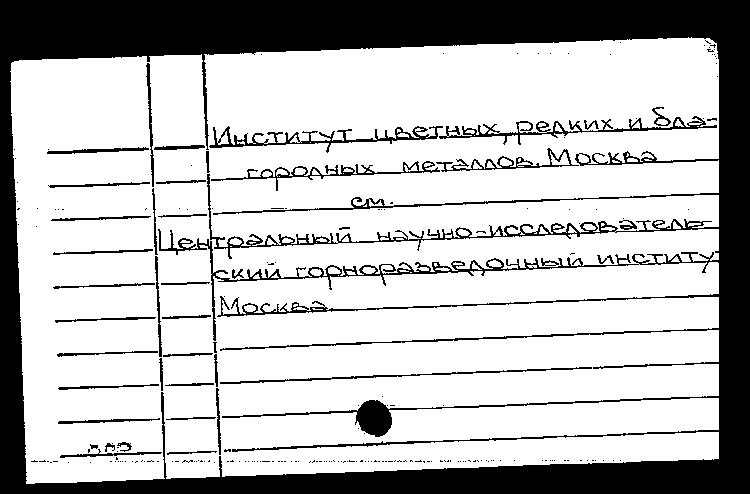 Институт цветных, редких и бла-
городных металлов. Москва
см.
Центральный научно-исследователь-
ский горноразведочный институ
Москва.